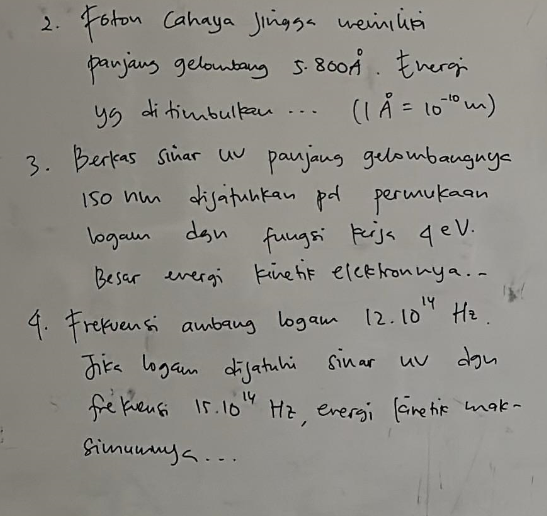 2. Foton Cahaya Jingga memiliki
panjang gelombang 5.800Å. Energi
yg ditimbulkan ... (1 Å = 10⁻¹⁰ m)
3. Berkas sinar uv panjang gelombangnya
150 nm dijatuhkan pd permukaan
logam dgn fungsi kerja 4 eV.
Besar energi kinetik elektronnya...
4. Frekuensi ambang logam 12.10¹⁴ Hz.
Jika logam dijatuhi sinar uv dgn
frekuensi 15.10¹⁴ Hz, energi kinetik mak-
simumnya...